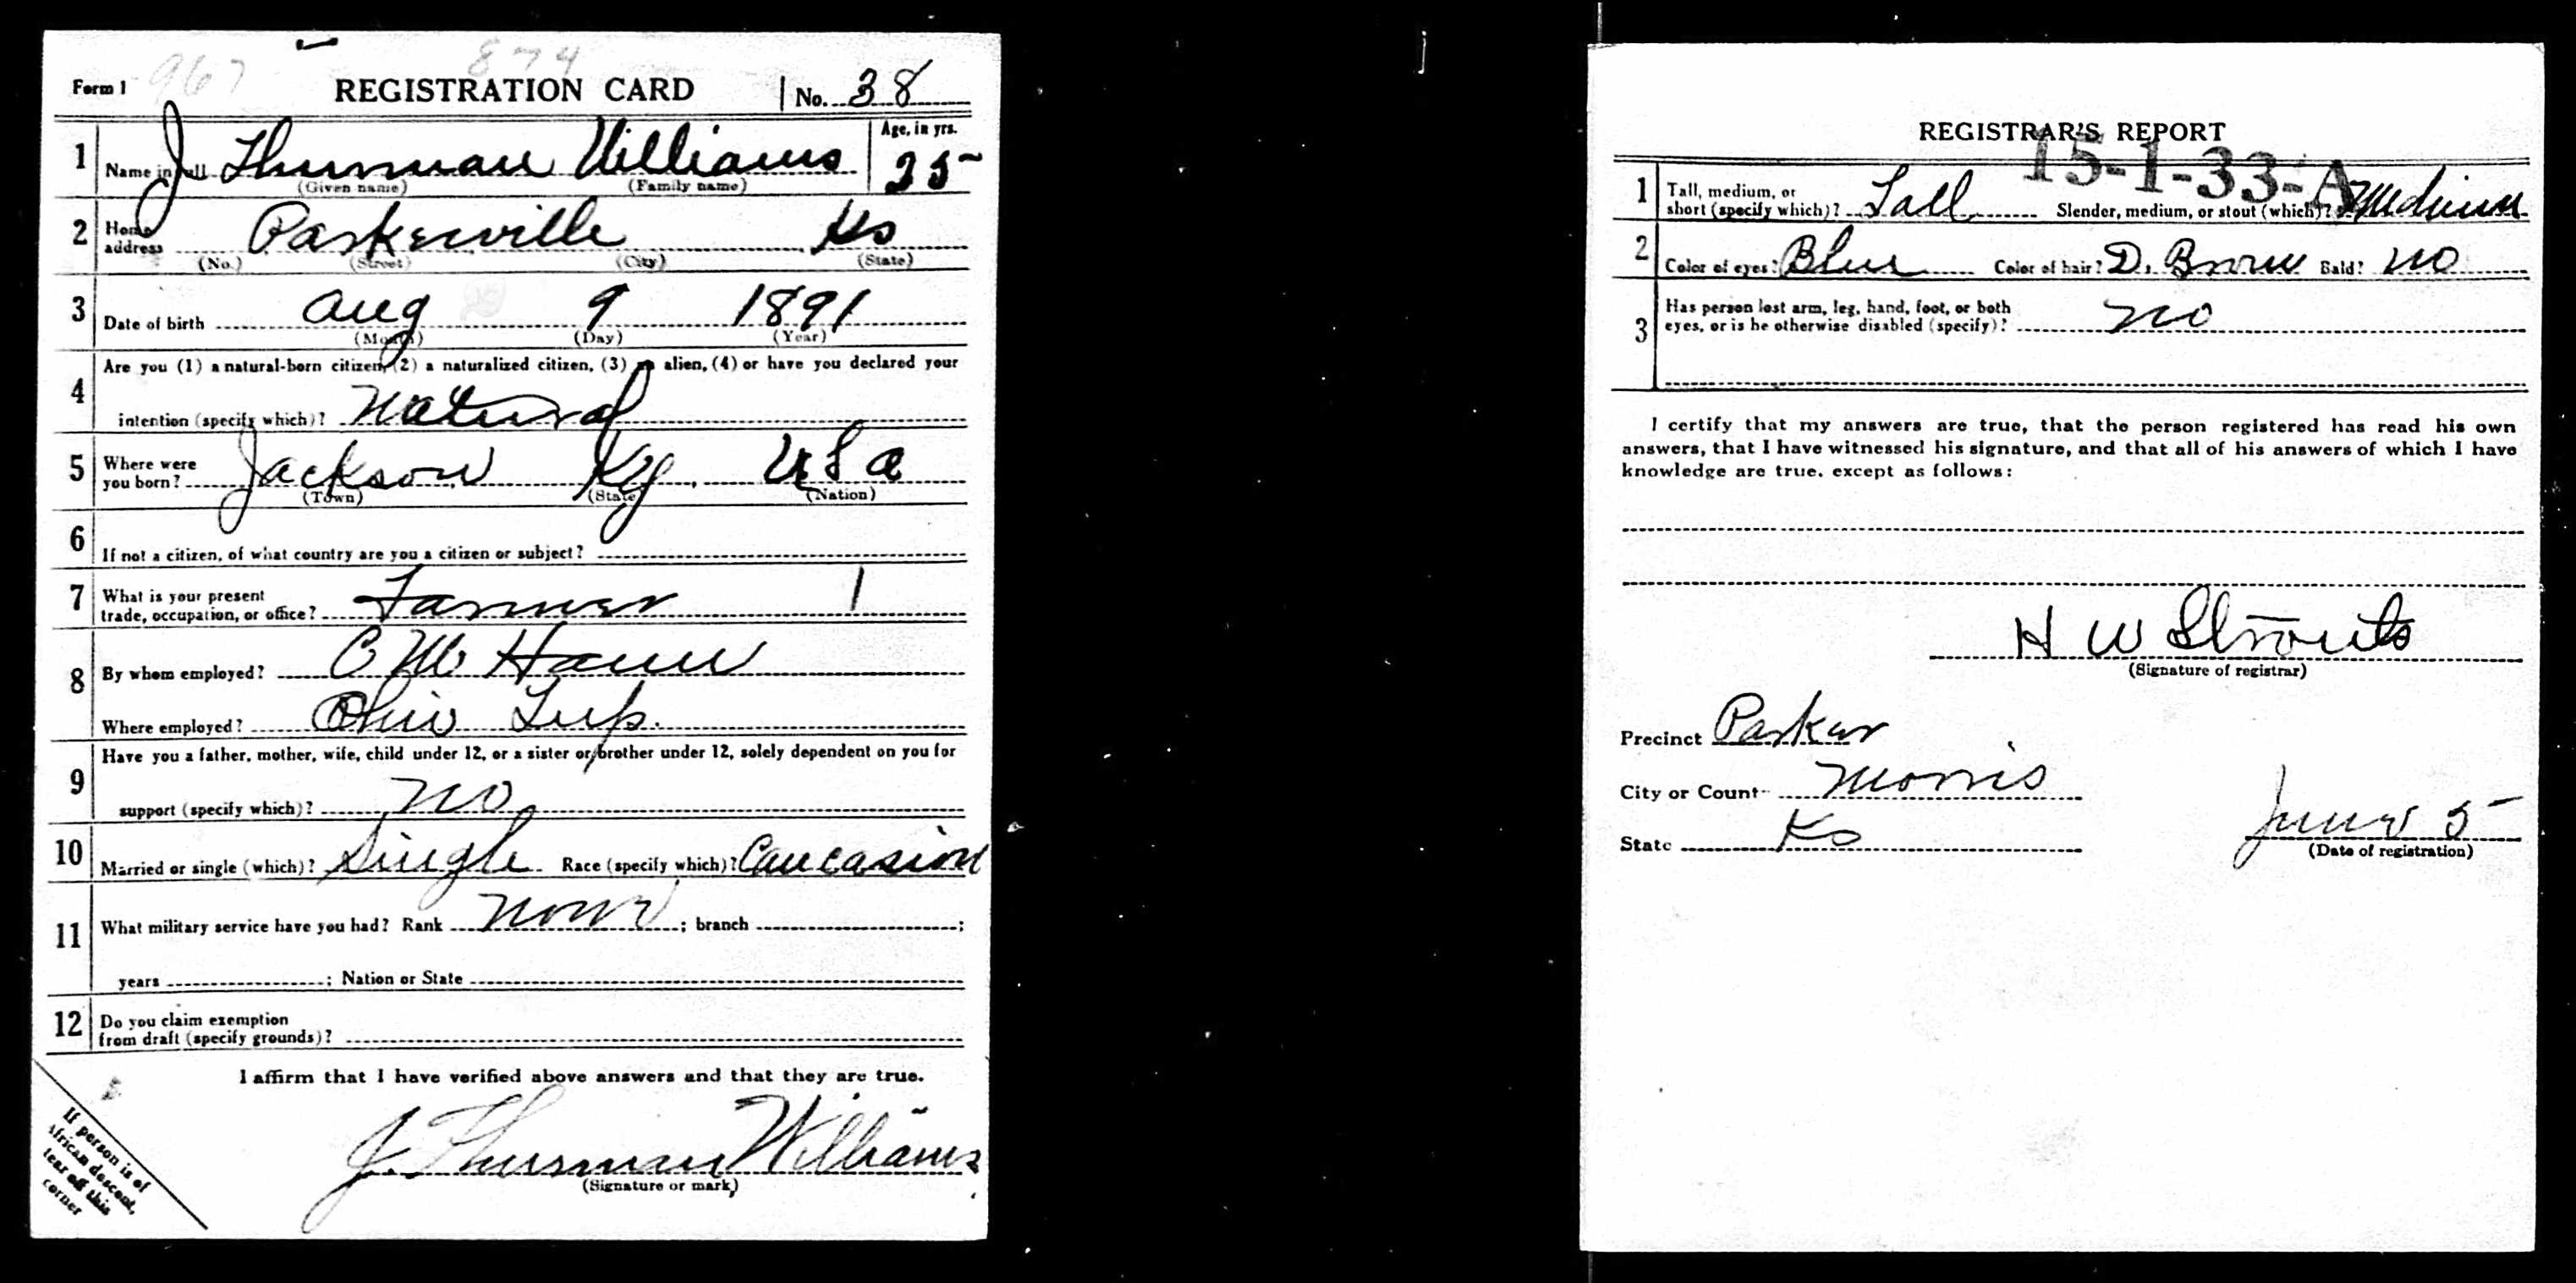 967
874
Form 1 REGISTRATION CARD No. 38
1 Name in full J Thurman Williams Age, in yrs. 25
(Given name) (Family name)
2 Home address Parkerville Ks
(No.) (Street) (City) (State)
3 Date of birth Aug 9 1891
(Month) (Day) (Year)
4 Are you (1) a natural-born citizen, (2) a naturalized citizen, (3) an alien, (4) or have you declared your
intention (specify which)? Natural
5 Where were you born? Jackson Ky. USA
(Town) (State) (Nation)
6 If not a citizen, of what country are you a citizen or subject?
7 What is your present
trade, occupation, or office? Farmer 1
8 By whom employed? C M
Where employed? Ohio Twp.
9 Have you a father, mother, wife, child under 12, or a sister or brother under 12, solely dependent on you for
support (specify which)? No
10 Married or single (which)? Single Race (specify which)? Caucasion
11 What military service have you had? Rank None ; branch ;
years ; Nation or State
12 Do you claim exemption
from draft (specify grounds)?
I affirm that I have verified above answers and that they are true.
J. Thurman Williams
(Signature or mark)
If person is of
African descent,
tear off this
corner
REGISTRAR'S REPORT
15-1-33-A
1 Tall, medium, or
short (specify which)? Tall Slender, medium, or stout (which)? Medium
2 Color of eyes? Blue Color of hair? D. Brown Bald? No
3 Has person lost arm, leg, hand, foot, or both
eyes, or is he otherwise disabled (specify)? No
I certify that my answers are true, that the person registered has read his own
answers, that I have witnessed his signature, and that all of his answers of which I have
knowledge are true, except as follows:
H W Strouts
(Signature of registrar)
Precinct Parker
City or County Morris
State Ks
June 5
(Date of registration)